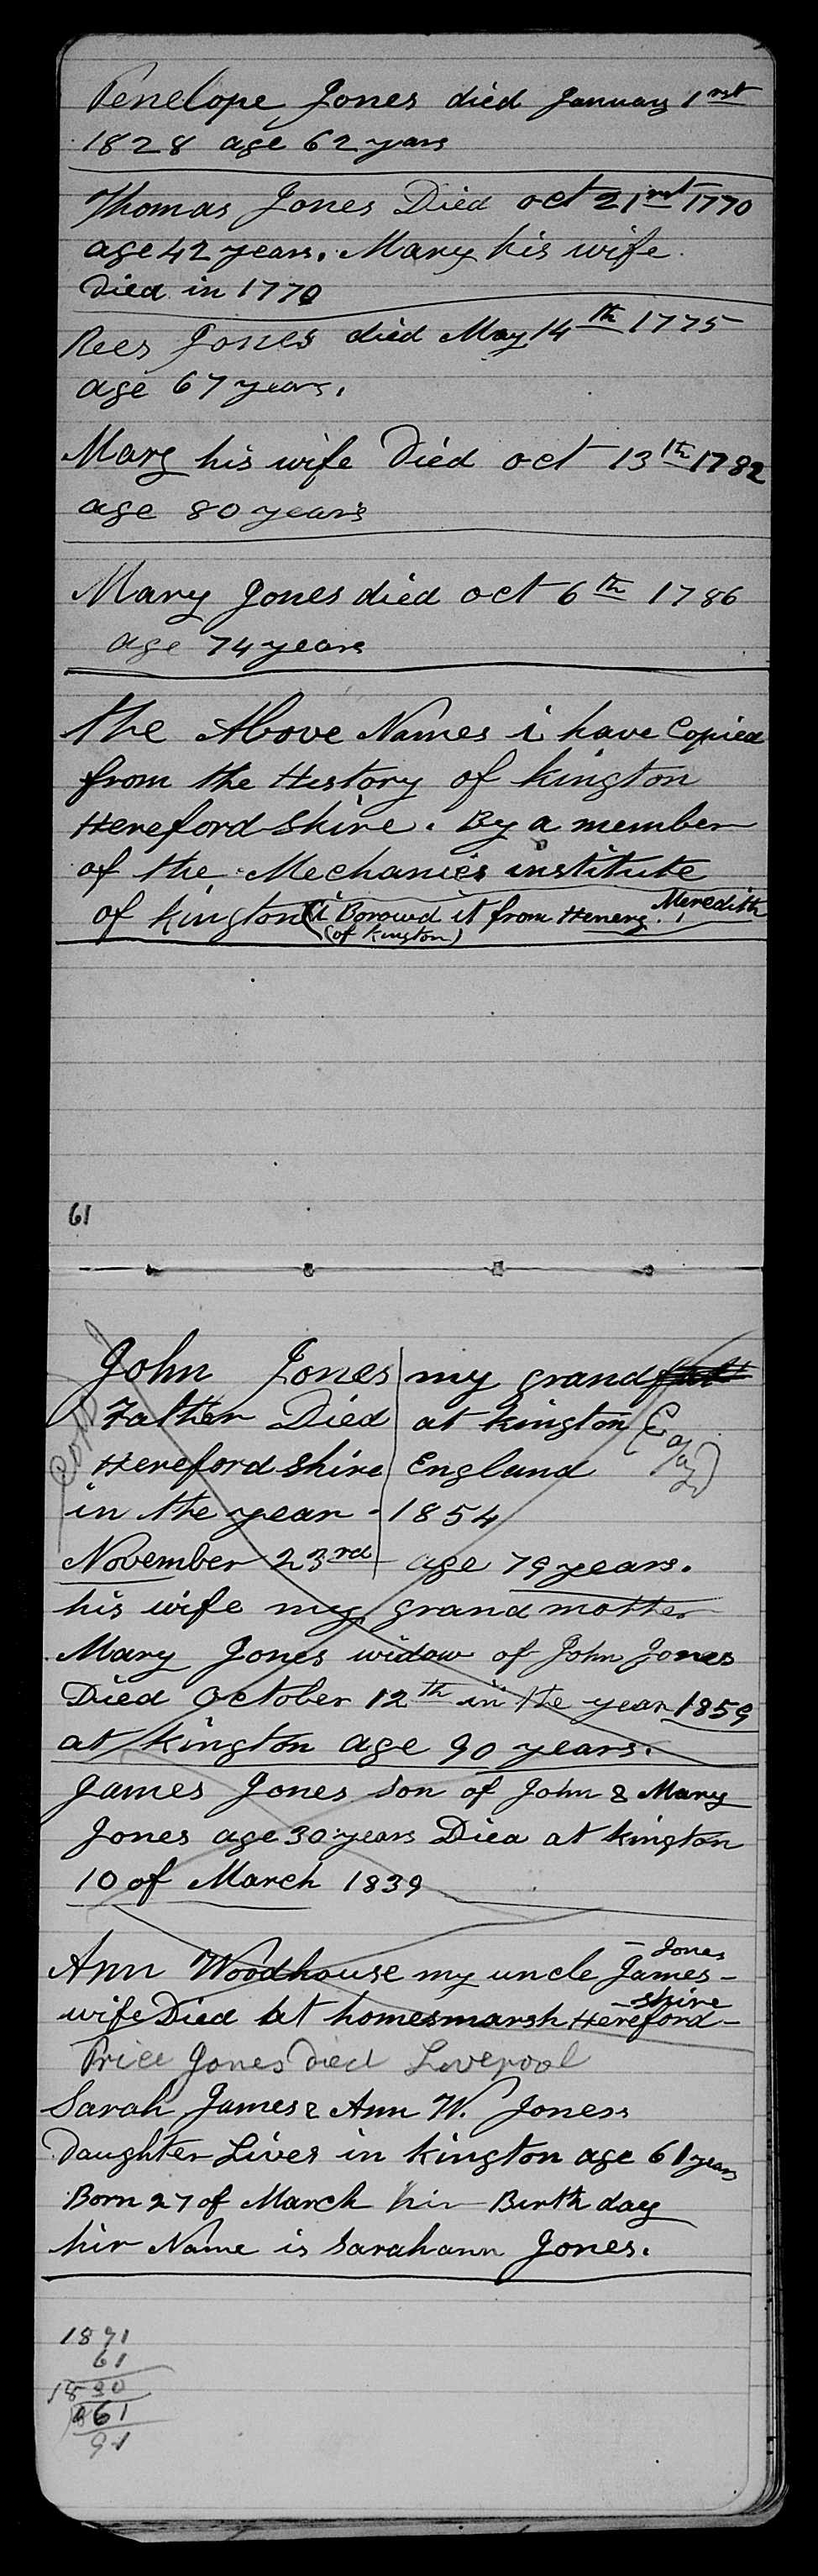 Penelope Jones died January 1rst
1828 age 62 years
Thomas Jones Died oct 21rst 1770
age 42 years. Mary his wife
Died in 1770
Rees Jones died May 14th 1775
age 67 years.
Mary his wife Died oct 13th 1782
age 80 years
Mary Jones died oct 6th 1786
age 74 years
the Above Names i have Copied
from the History of Kington
Hereford shire. By a member
of the Mechanics institute
of Kington (i Borowd it from Henery Meredith
(of Kington)
61
John Jones my grand
Father Died at Kington
Hereford shire England
in the year - 1854
November 23rd age 79 years.
his wife my grand mother
Mary Jones widow of John Jones
Died October 12th in the year 1859
at Kington age 90 years.
James Jones son of John & Mary
Jones age 30 years Died at Kington
10 of March 1839
Ann Woodhouse my uncle James - Jones
wife Died at homesmarsh Hereford - shire
Price Jones Died Liverpool
Sarah James & Ann W. Joness
Daughter Lives in Kington age 61 years
Born 27 of March hir Birth day
hir Name is Sarahann Jones.
1891
61
1830
61
91